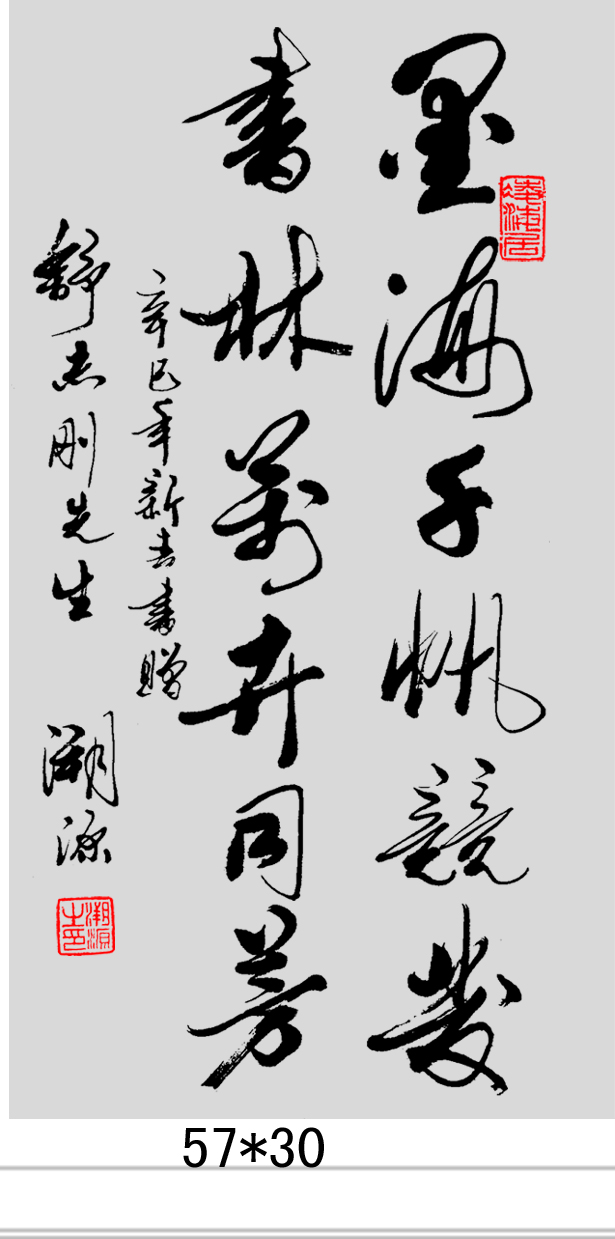 墨海千帆競發
書林萬卉同芳
辛巳年新吉書贈
舒志剛先生
溯源
57*30